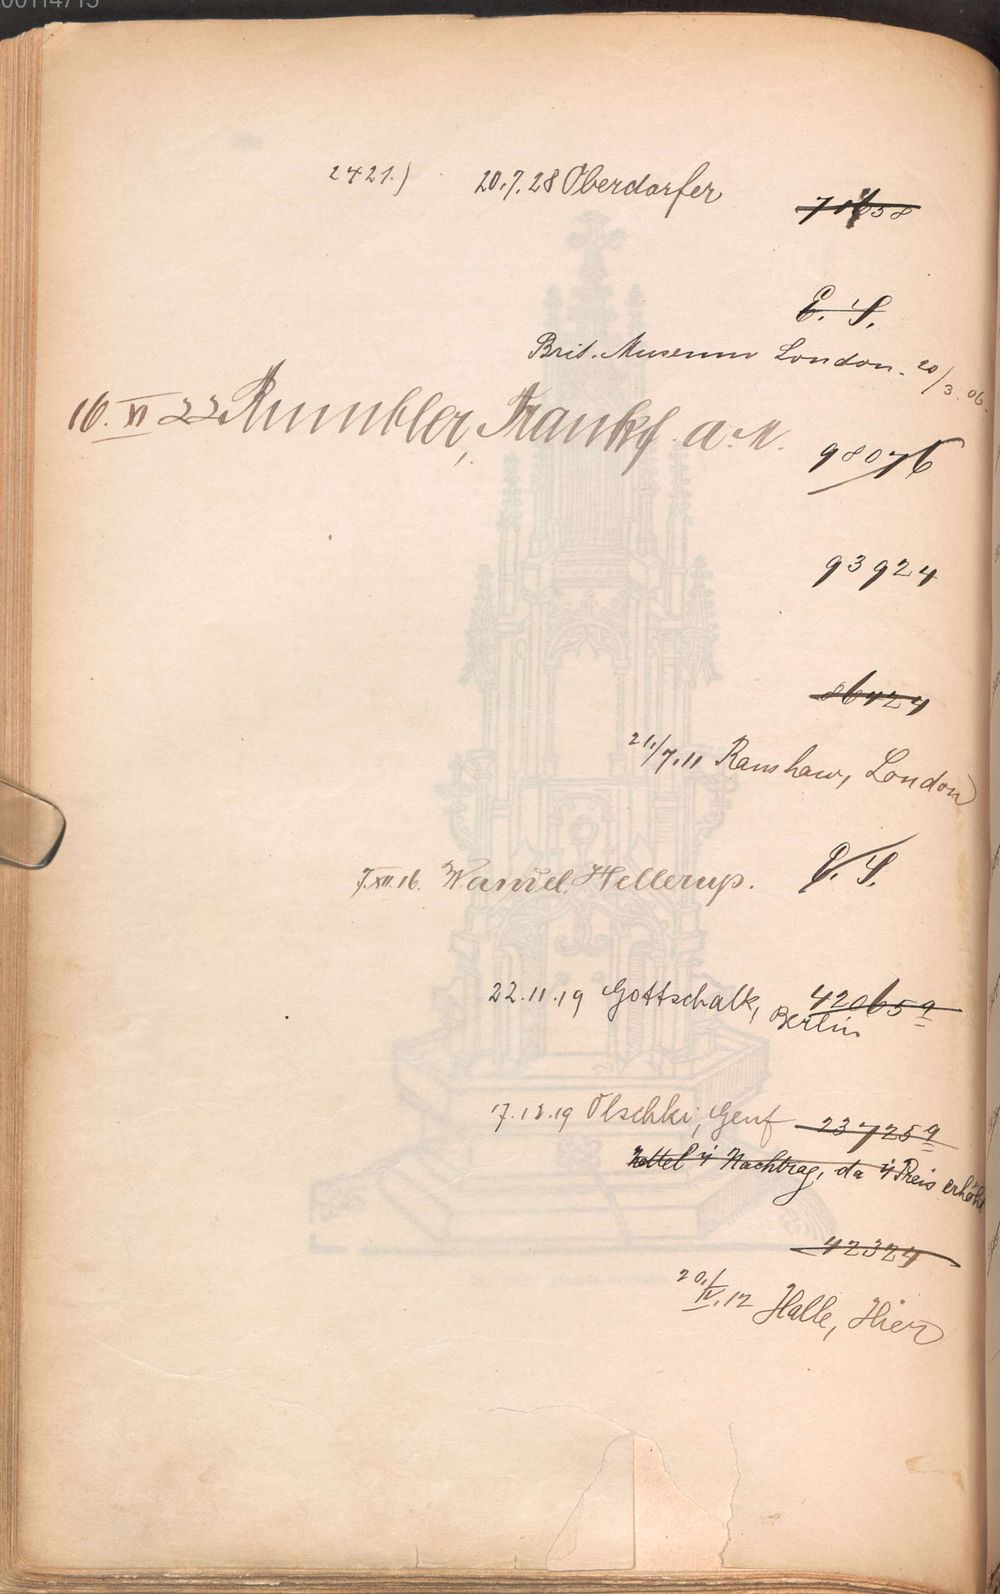 2421.) 20.7.28 Oberdorfer 71658
E. S.
Brit. Museum London. 20/3.06.
16. VI 22 Rumbler, Frankf. a. M. 98076
93924
86424
21./7.11 Ranshaw, London
7.XII.16. Wandel, Hellerup. E. S.
22.11.19 Gottschalk, Berlin 42065a
17.12.19 Olschki, Genf 23725a
Zettel i/ Nachtrag, da i/ Preis erhöht
42324
20./IV.12 Halle, Hier